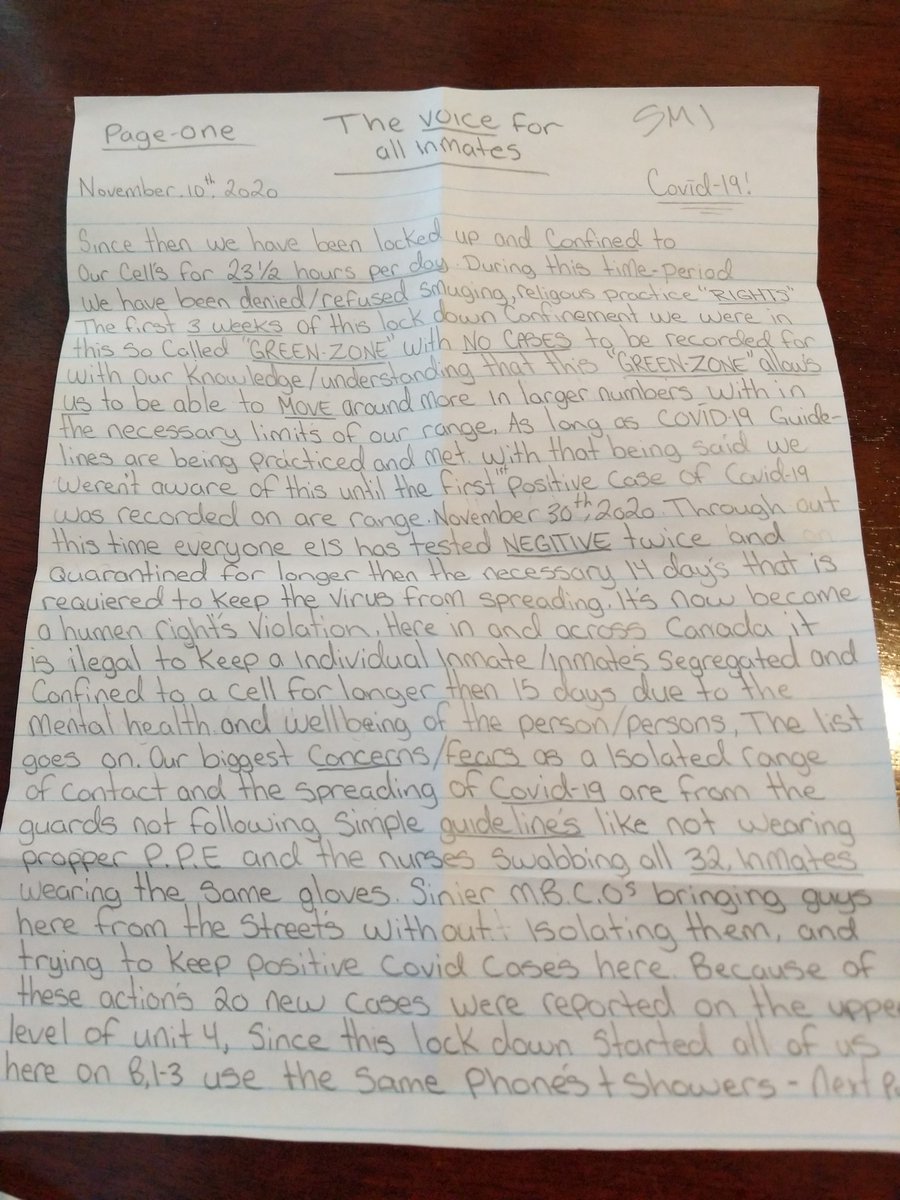 Page-one The voice for SMI
all inmates
November.10th, 2020 Covid-19!
Since then we have been locked up and confined to
Our Cell's for 23 1/2 hours per day. During this time-period
we have been denied/refused smuging, religous practice "RIGHTS"
The first 3 weeks of this lock down confinement we were in
this so called "GREEN-ZONE" with NO CASES to be recorded for
with our knowledge/understanding that this "GREEN-ZONE" allows
us to be able to MOVE around more in larger numbers with in
the necessary limits of our range, As long as COVID-19 Guide-
lines are being practiced and met. with that being said we
weren't aware of this until the first 1st positive case of Covid-19
was recorded on are range. November 30th, 2020. Through out
this time everyone els has tested NEGITIVE twice and
Quarantined for longer then the necessary 14 day's that is
requiered to keep the virus from spreading. It's now become
a human right's violation. Here in and across Canada it
is ilegal to keep a individual inmate/inmate's segregated and
confined to a cell for longer then 15 days due to the
mental health and wellbeing of the person/persons, The list
goes on. Our biggest concerns/fears as a isolated range
of contact and the spreading of Covid-19 are from the
guards not following simple guideline's like not wearing
propper P.P.E and the nurses swabbing all 32, inmates
wearing the same gloves. Sinier M.B.C.Os bringing guys
here from the street's without isolating them, and
trying to keep positive Covid cases here. Because of
these action's 20 new cases were reported on the upper
level of unit 4, Since this lock down started all of us
here on B,1-3 use the same phone's + showers - next